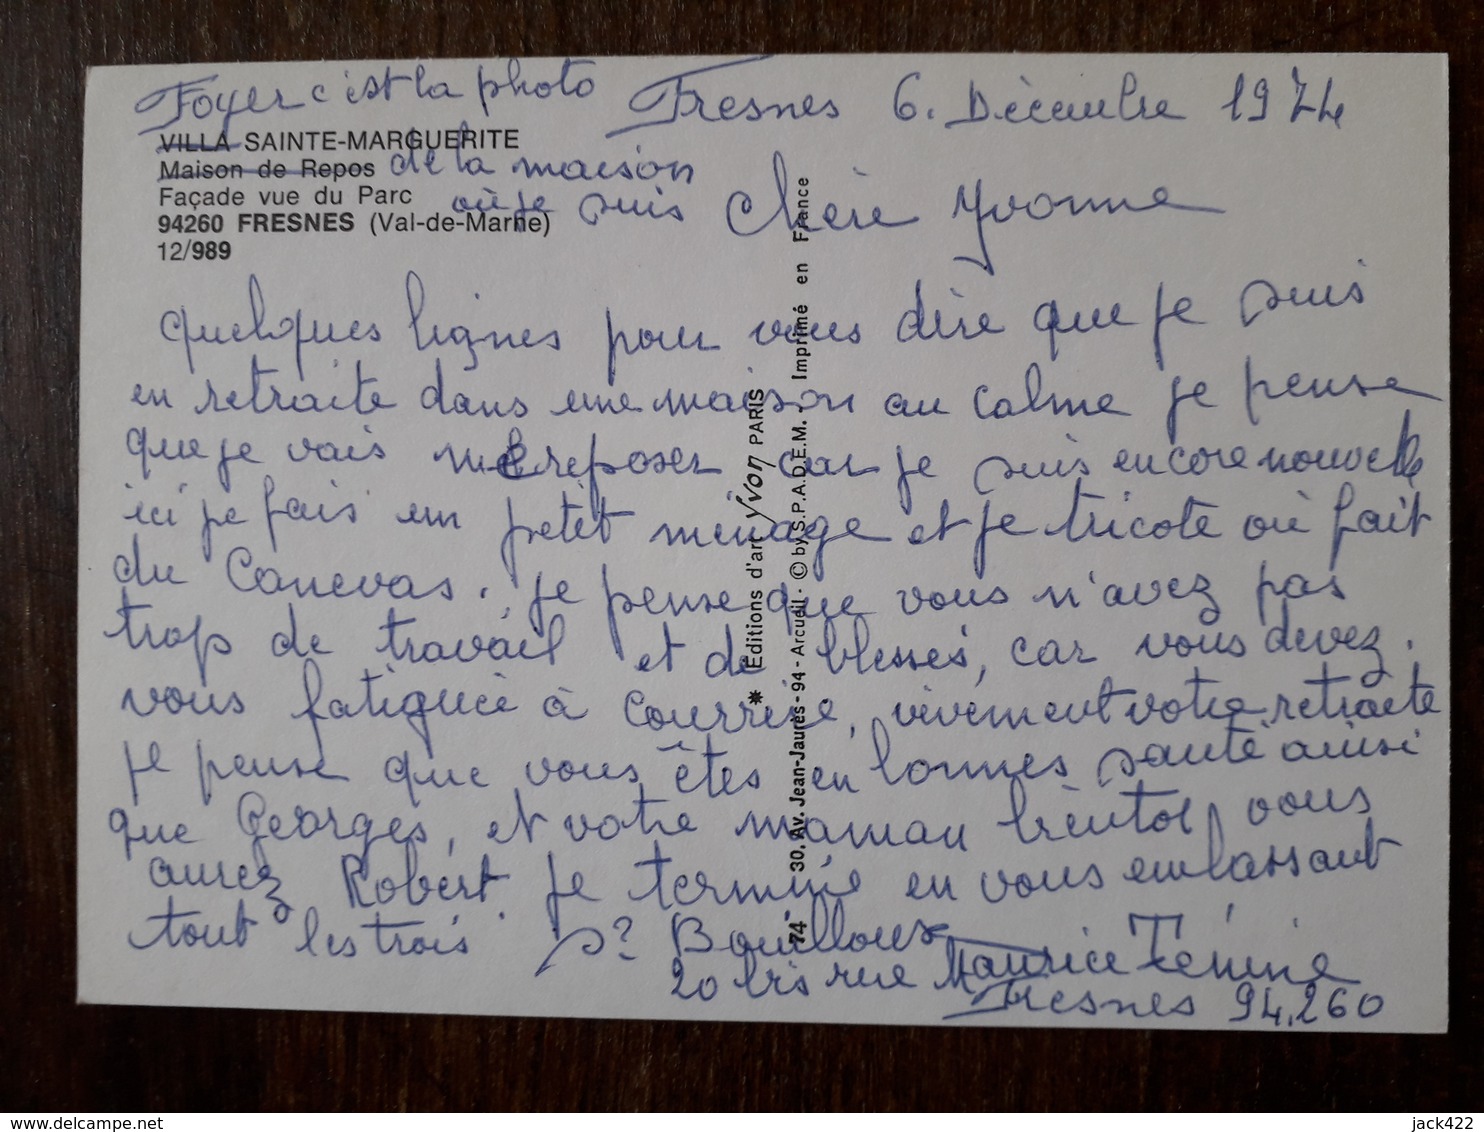 Foyer c'est la photo
VILLA SAINTE-MARGUERITE
Maison de Repos de la maison
Façade vue du Parc où je suis
94260 FRESNES (Val-de-Marne)
12/989
Fresnes 6. Dècembre 1974
Chère Yvonne
quelques lignes pour vous dire que je suis
en retraite dans une maison au calme je pense
que je vais me reposer car je suis encore nouvelle
ici je fais un petit ménage et je tricote où fait
du Canevas. je pense que vous n'avez pas
trop de travail et de blessés, car vous devez.
vous fatiguée à courrire, vivement votre retraite
je pense que vous êtes en bonnes santé ainsi
que Georges, et votre maman bientot vous
aurez Robert je termine en vous embassant
tout les trois. Bouilloux
20 bis rue Maurice Ténine
Fresnes 94.260
✷ Editions d'art Yvon PARIS
74 30, Av. Jean-Jaurès - 94 - Arcueil - © by S.P.A.D.E.M. - Imprimé en France
jack422